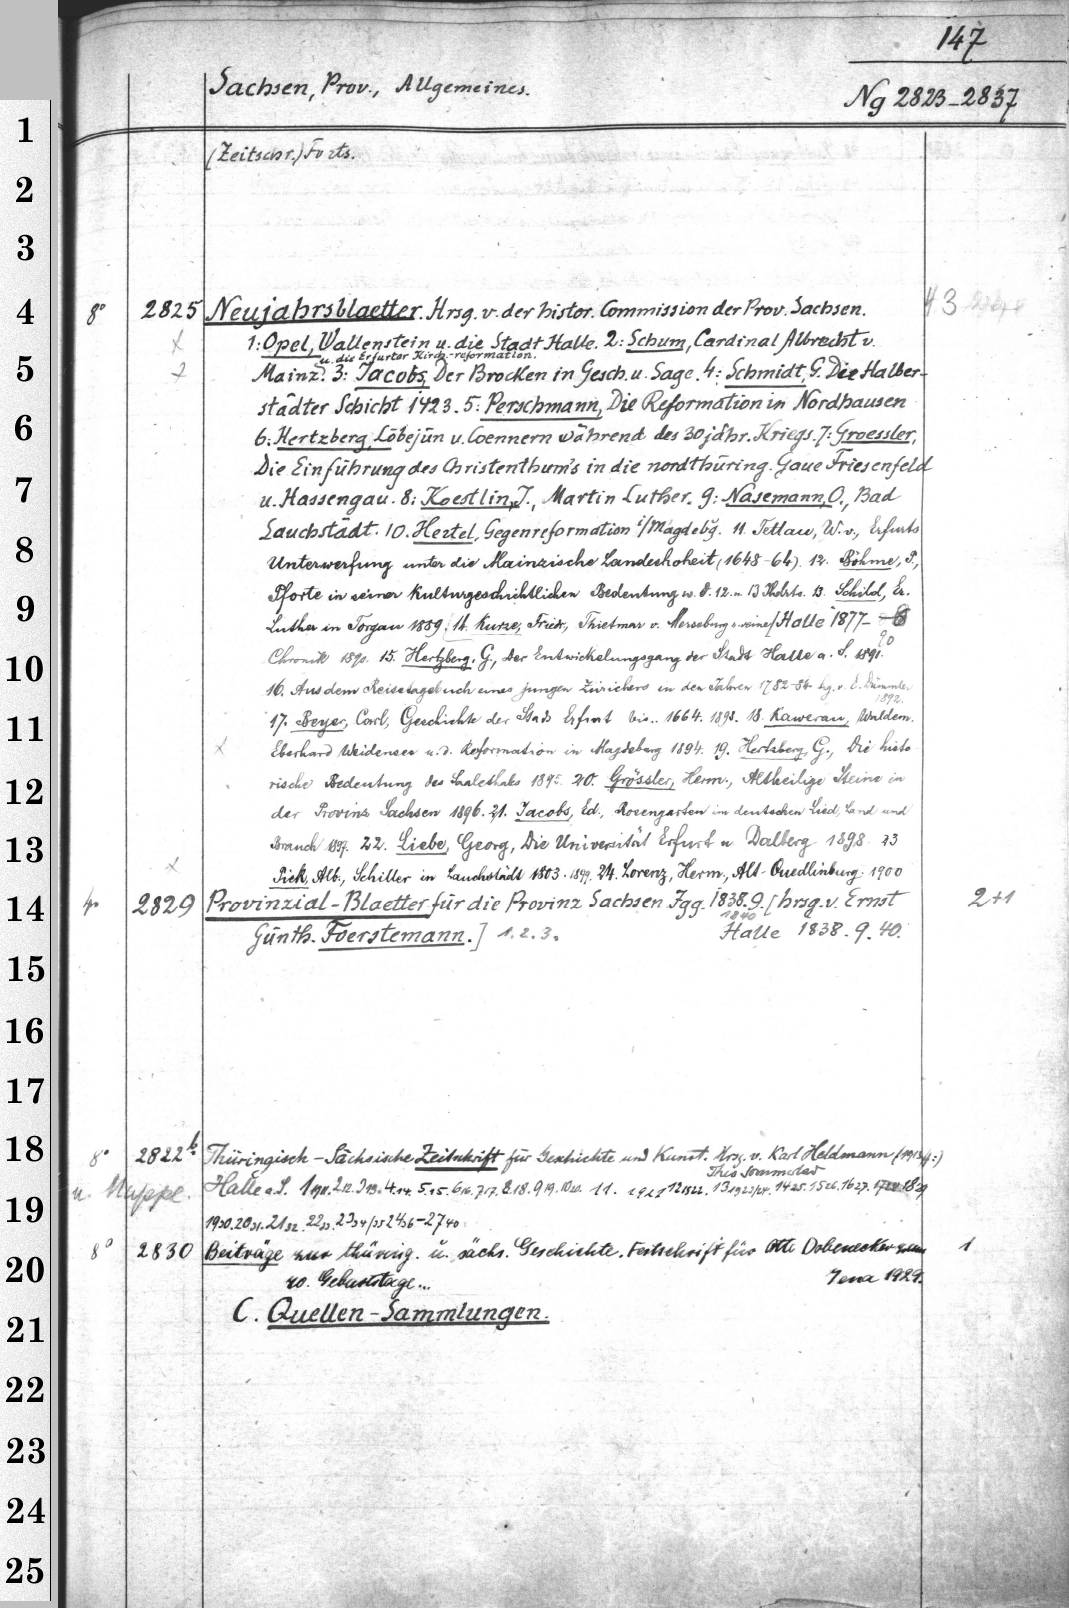 147
Sachsen, Prov., Allgemeines.
Ng 2823-2837
(Zeitschr.) Forts.
8° 2825 Neujahrsblaetter. Hrsg. v. der histor. Commission der Prov. Sachsen.
1: Opel, Wallenstein u. die Stadt Halle. 2: Schum, Cardinal Albrecht v.
u. die Erfurter Kirch.-reformation.
Mainz. 3: Jacobs, Der Brocken in Gesch. u. Sage. 4: Schmidt, G. Die Halber-
städter Schicht 1423. 5: Perschmann, Die Reformation in Nordhausen
6: Hertzberg, Löbejün u. Coennern während des 30jähr. Kriegs. 7: Groessler,
Die Einführung des Christenthum's in die nordthüring. Gaue Friesenfeld
u. Hassengau. 8: Koestlin, J., Martin Luther. 9: Nasemann, O., Bad
Lauchstädt. 10. Hertel, Gegenreformation i/Magdeb'g. 11. Tettau, W. v., Erfurts
Unterwerfung unter die Mainzische Landeshoheit (1648-64). 12. Böhme, P.,
Pforte in seiner kulturgeschichtlichen Bedeutung w. d. 12. u. 13 Jhdrts. 13. Schild, Er.
Luther in Torgau 1889. 14. Kurze, Friedr., Thietmar v. Merseburg u. seine [Halle 1877-
90
Chronik 1890. 15. Hertzberg, G., Der Entwickelungsgang der Stadt Halle a. S. 1891.
16. Aus dem Reisetagebuch eines jungen Zürichers in den Jahren 1782-84 hg. v. E. Dümmler
1892.
17. Beyer, Carl, Geschichte der Stadt Erfurt bis.. 1664. 1893. 18. Kawerau, Waldem.
Eberhard Weidensee u. d. Reformation in Magdeburg 1894. 19. Hertzberg, G., Die histo-
rische Bedeutung des Saalethals 1895. 20. Grössler, Herm., Altheilige Steine in
der Provinz Sachsen 1896. 21. Jacobs, Ed., Rosengarten im deutschen Lied, Land und
Brauch 1897. 22. Liebe, Georg, Die Universität Erfurt u Dalberg 1898 23
Pick, Alb., Schiller in Lauchstädt 1803. 1899. 24. Lorenz, Herm., Alt-Quedlinburg. 1900
4° 2829 Provinzial-Blaetter für die Provinz Sachsen Jgg. 1838.9. [hrsg. v. Ernst 2+1
1840
Günth. Foerstemann.] 1.2.3. Halle 1838.9.40.
8° 2822b. Thüringisch-Sächsische Zeitschrift für Geschichte und Kunst. Hrsg. v. Karl Heldmann
u. Mappe. Halle a. S.
8° 2830 Beiträge zur thüring. u. sächs. Geschichte. Festschrift für Otto Dobenecker zum 1
70. Geburtstage... Jena 1929.
C. Quellen-Sammlungen.
1
2
3
4
5
6
7
8
9
10
11
12
13
14
15
16
17
18
19
20
21
22
23
24
25